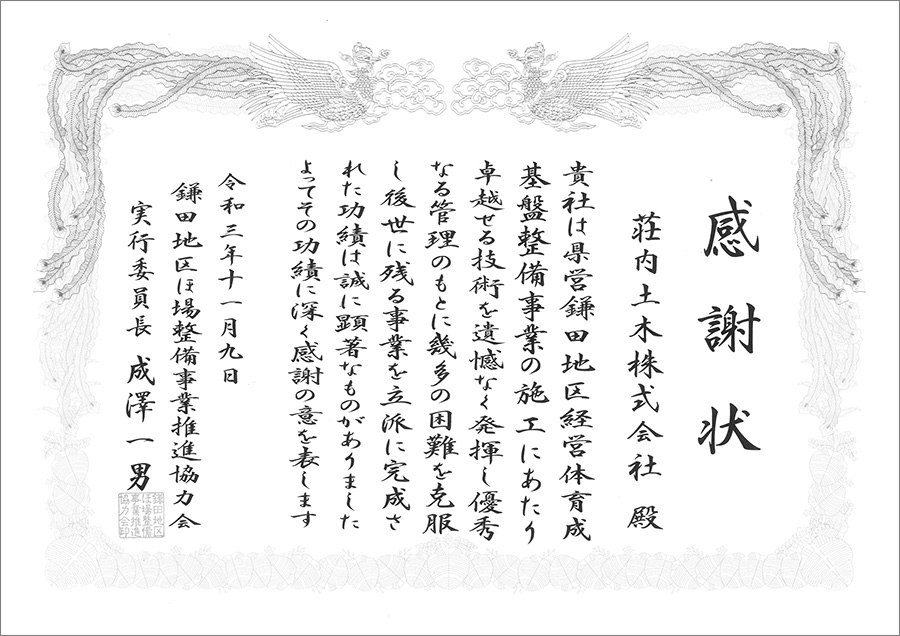 感謝状
荘内土木株式会社 殿
貴社は県営鎌田地区経営体育成
基盤整備事業の施工にあたり
卓越せる技術を遺憾なく発揮し優秀
なる管理のもとに幾多の困難を克服
し後世に残る事業を立派に完成さ
れた功績は誠に顕著なものがありました
よってその功績に深く感謝の意を表します
令和三年十一月九日
鎌田地区ほ場整備事業推進協力会
実行委員長 成澤一男
鎌田地区
ほ場整備
事業推進
協力会印